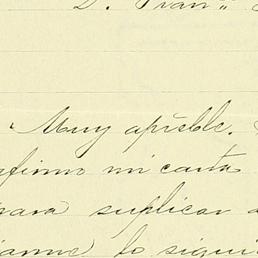 D. Fran.
Muy apreble.
afirmo mi carta
para suplicar
lo sigui